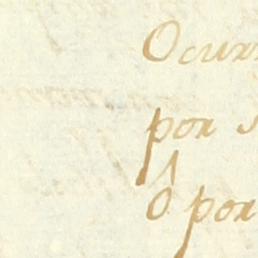 Ocurr
por s
ô por